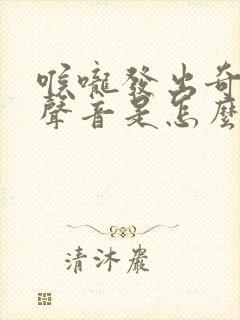 喉嚨發出奇
聲音是怎麼
清沐嚴